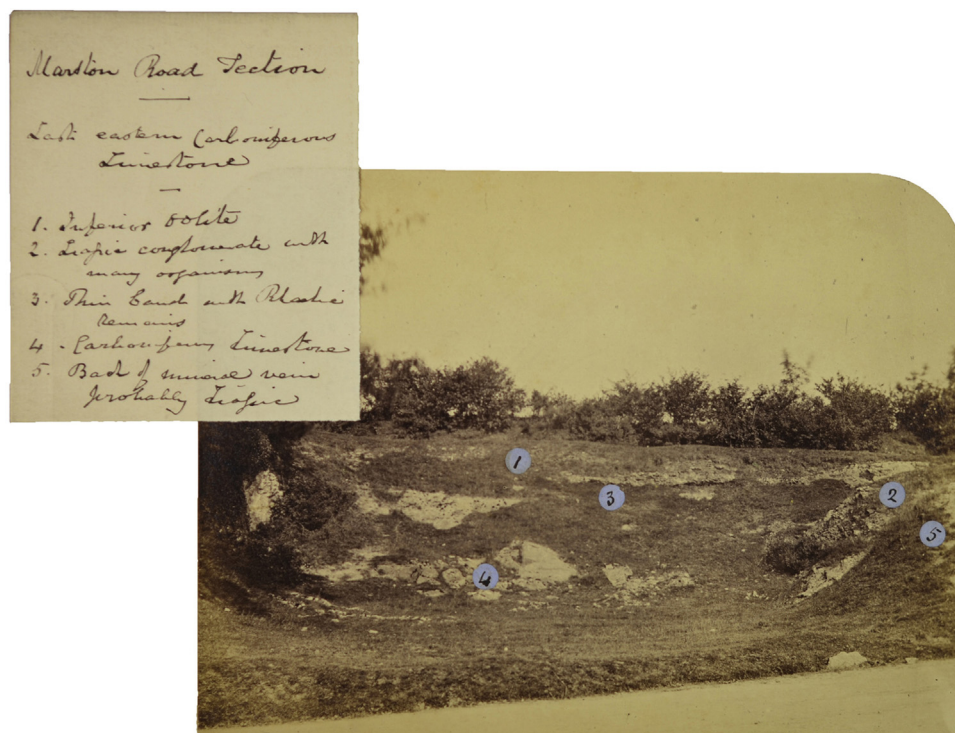 Marston Road Section
Last eastern Carboniferous
Limestone
1. Inferior Oolite
2. Liassic conglomerate with
many organisms
3. Thin band with Rhaetic
Remains
4. Carboniferous Limestone
5. Back of mineral vein
probably Liassic
1
3
2
5
4